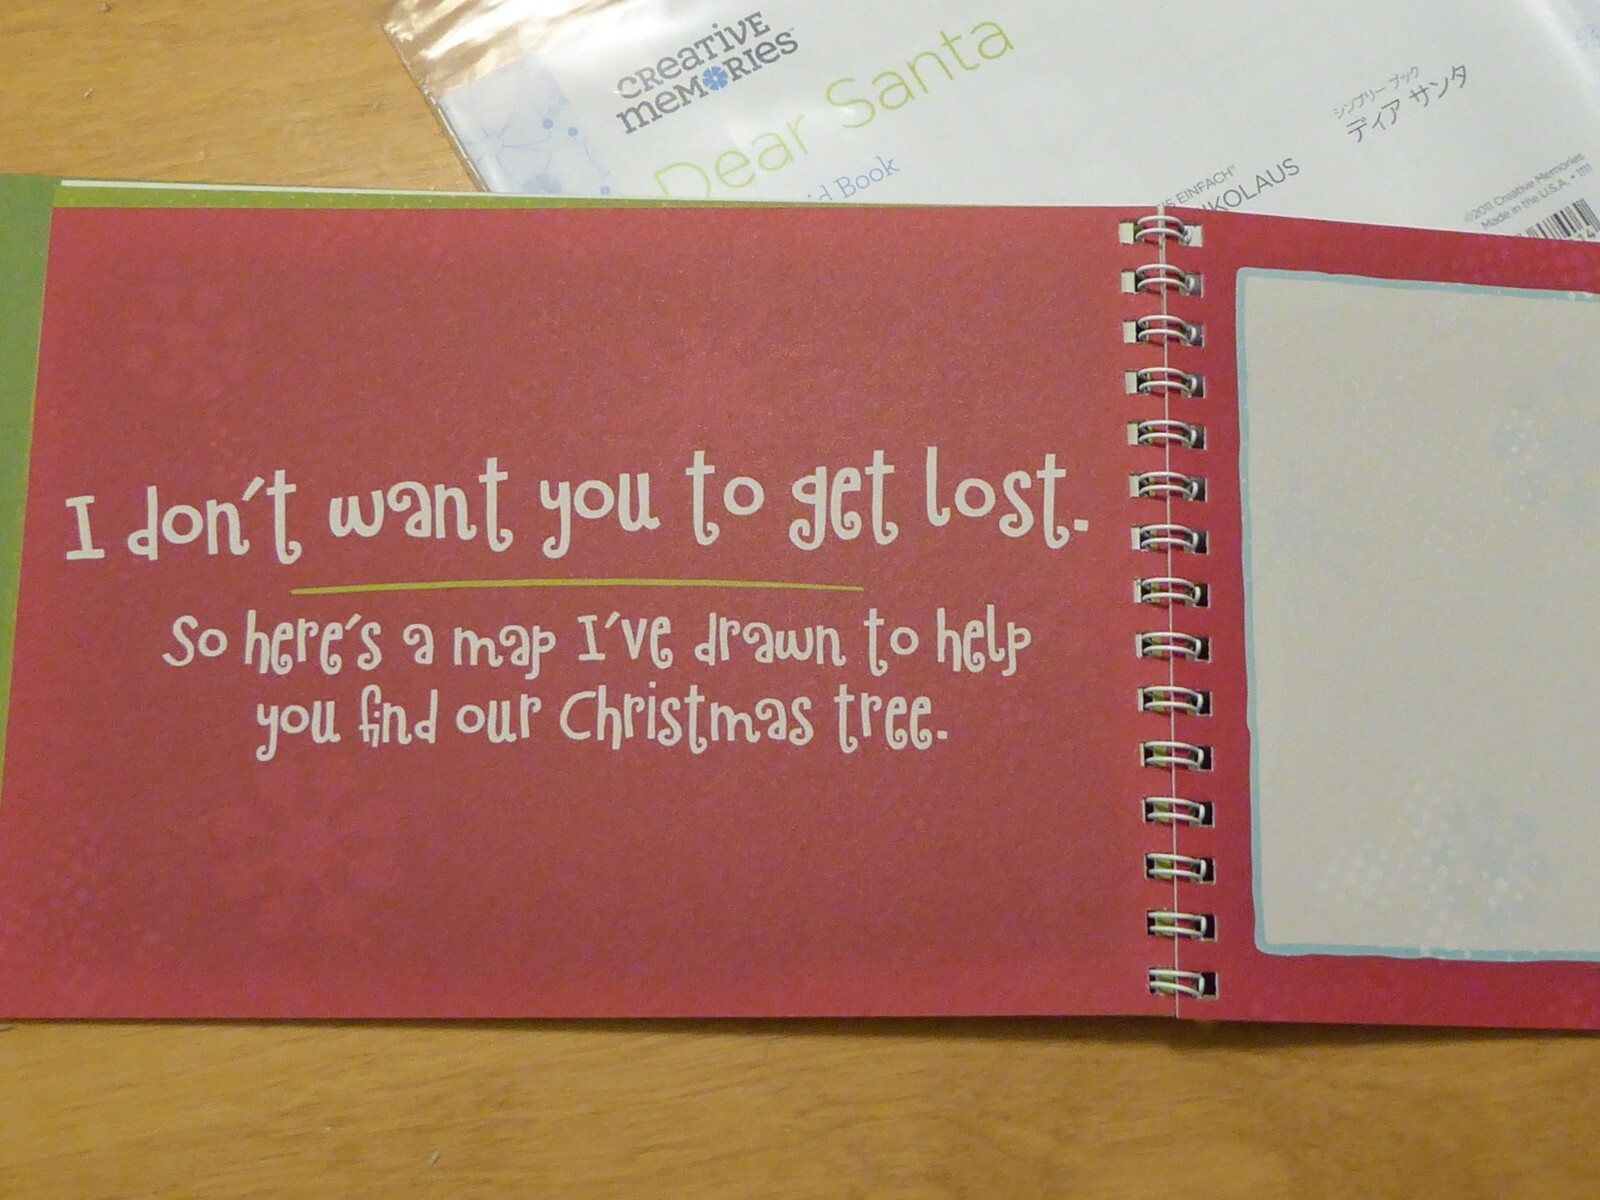 CREATIVE
MEMORIES
Dear Santa
Book
シンプリー ブック
ディア サンタ
EINFACH"
©2011 Creative Memories
Made in the U.S.A. • 1111
I don't want you to get lost.
So here's a map I've drawn to help
you find our Christmas tree.